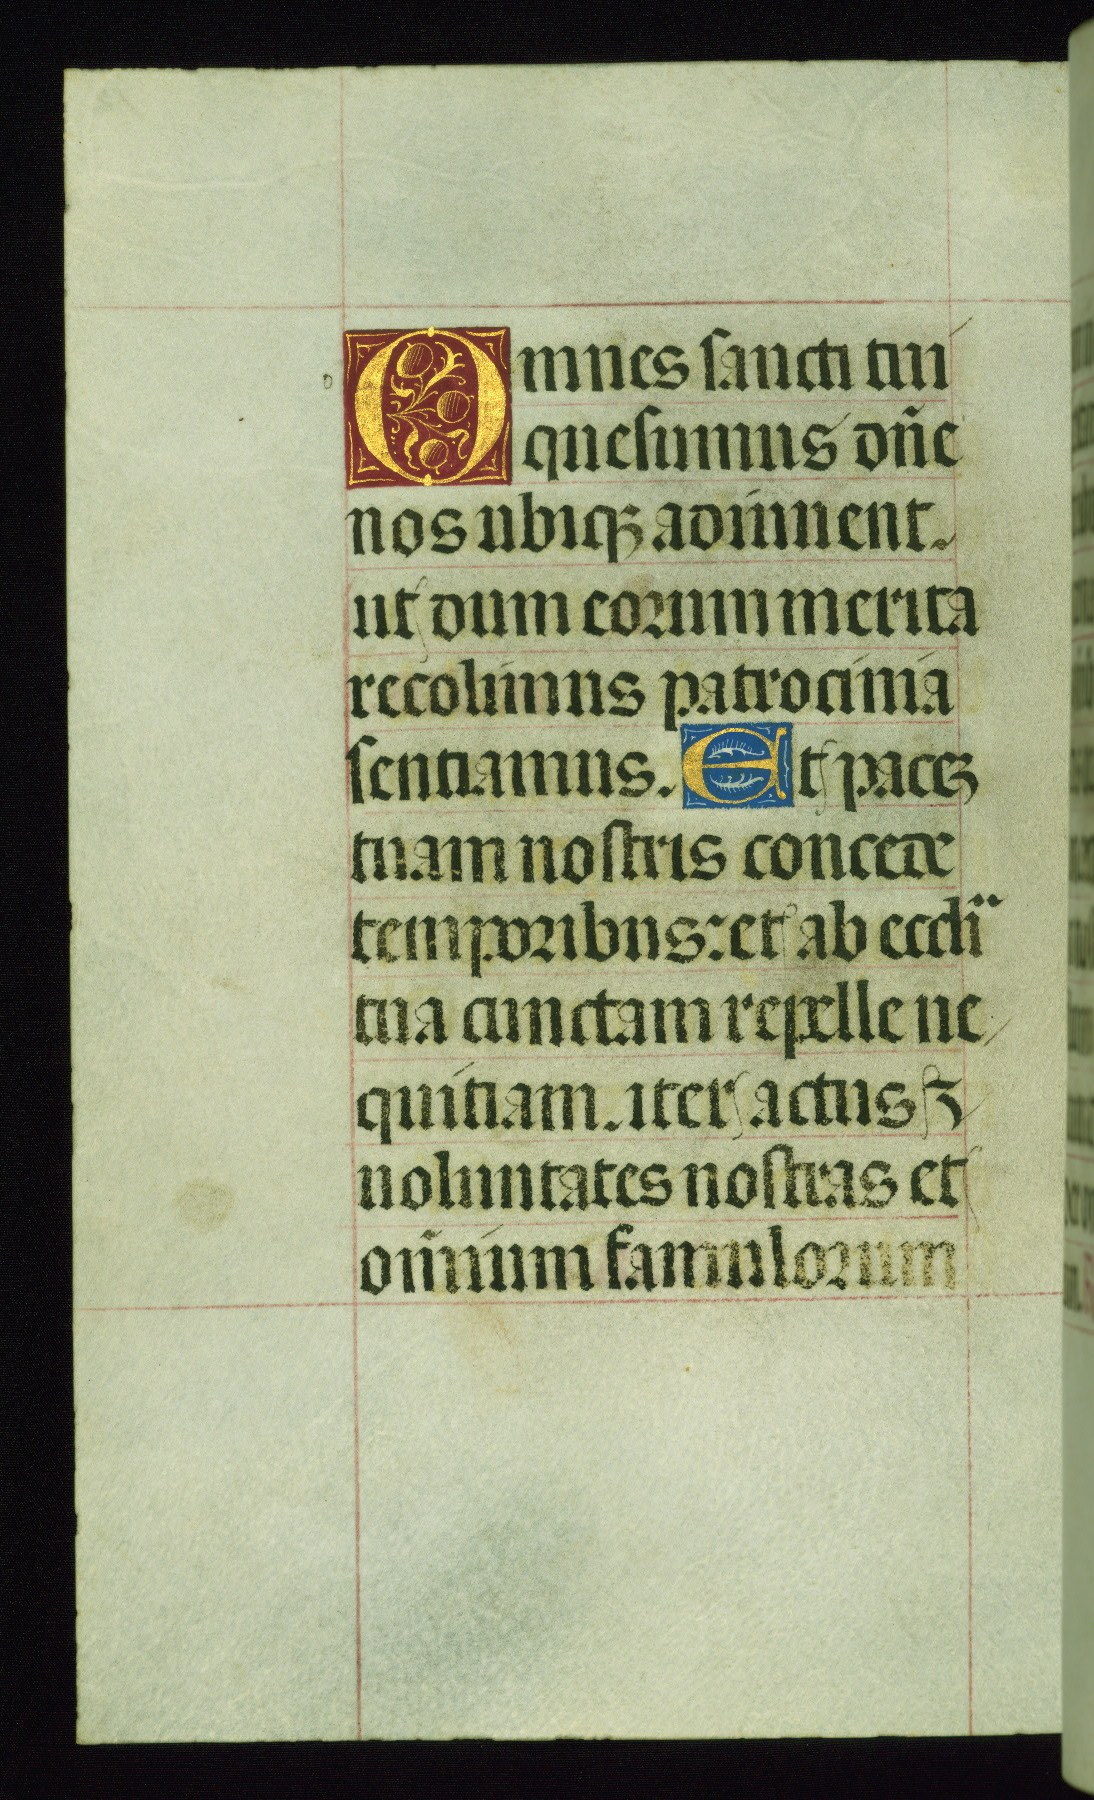 Omnes sancti tui
quesumus dñe
nos ubiqꝫ adiuuent.
ut dum eorum merita
recolimus patrocinia
sentiamus. Et paceꝫ
tuam nostris concede
temporibus: et ab eccłi
tua cunctam repelle ne
quitiam. iter actus ⁊
uoluntates nostras et
om̄ium famulorum